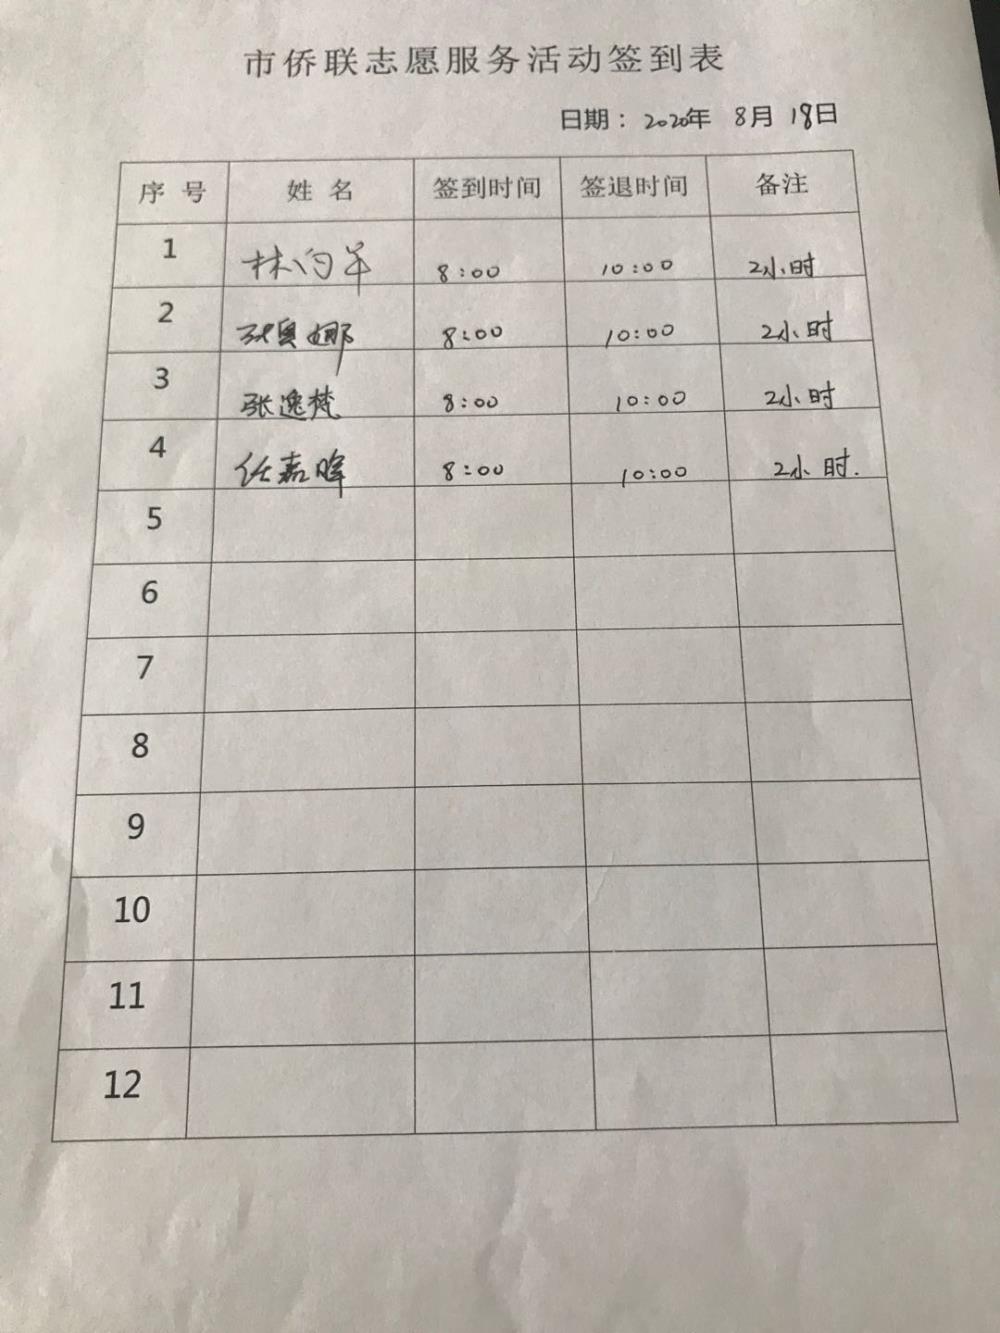 市侨联志愿服务活动签到表
日期： 2020年 8月 18日
序 号 姓 名 签到时间 签退时间 备注
1 林 羊 8:00 10:00 2小时
2 娜 8:00 10:00 2小时
3 张逸梵 8:00 10:00 2小时
4 任嘉晖 8:00 10:00 2小时.
5
6
7
8
9
10
11
12